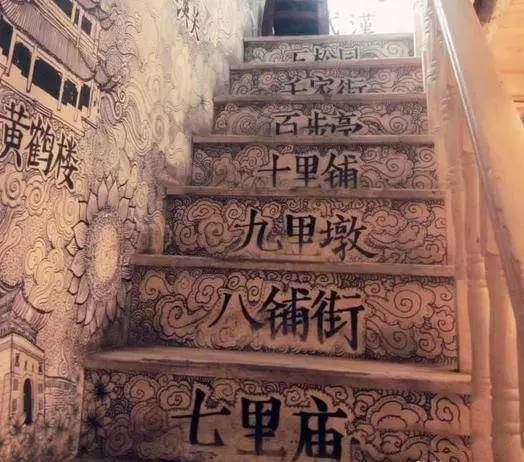 武汉
万松园
千家街
百步亭
十里铺
九甲墩
八铺街
七里庙
黄鹤楼